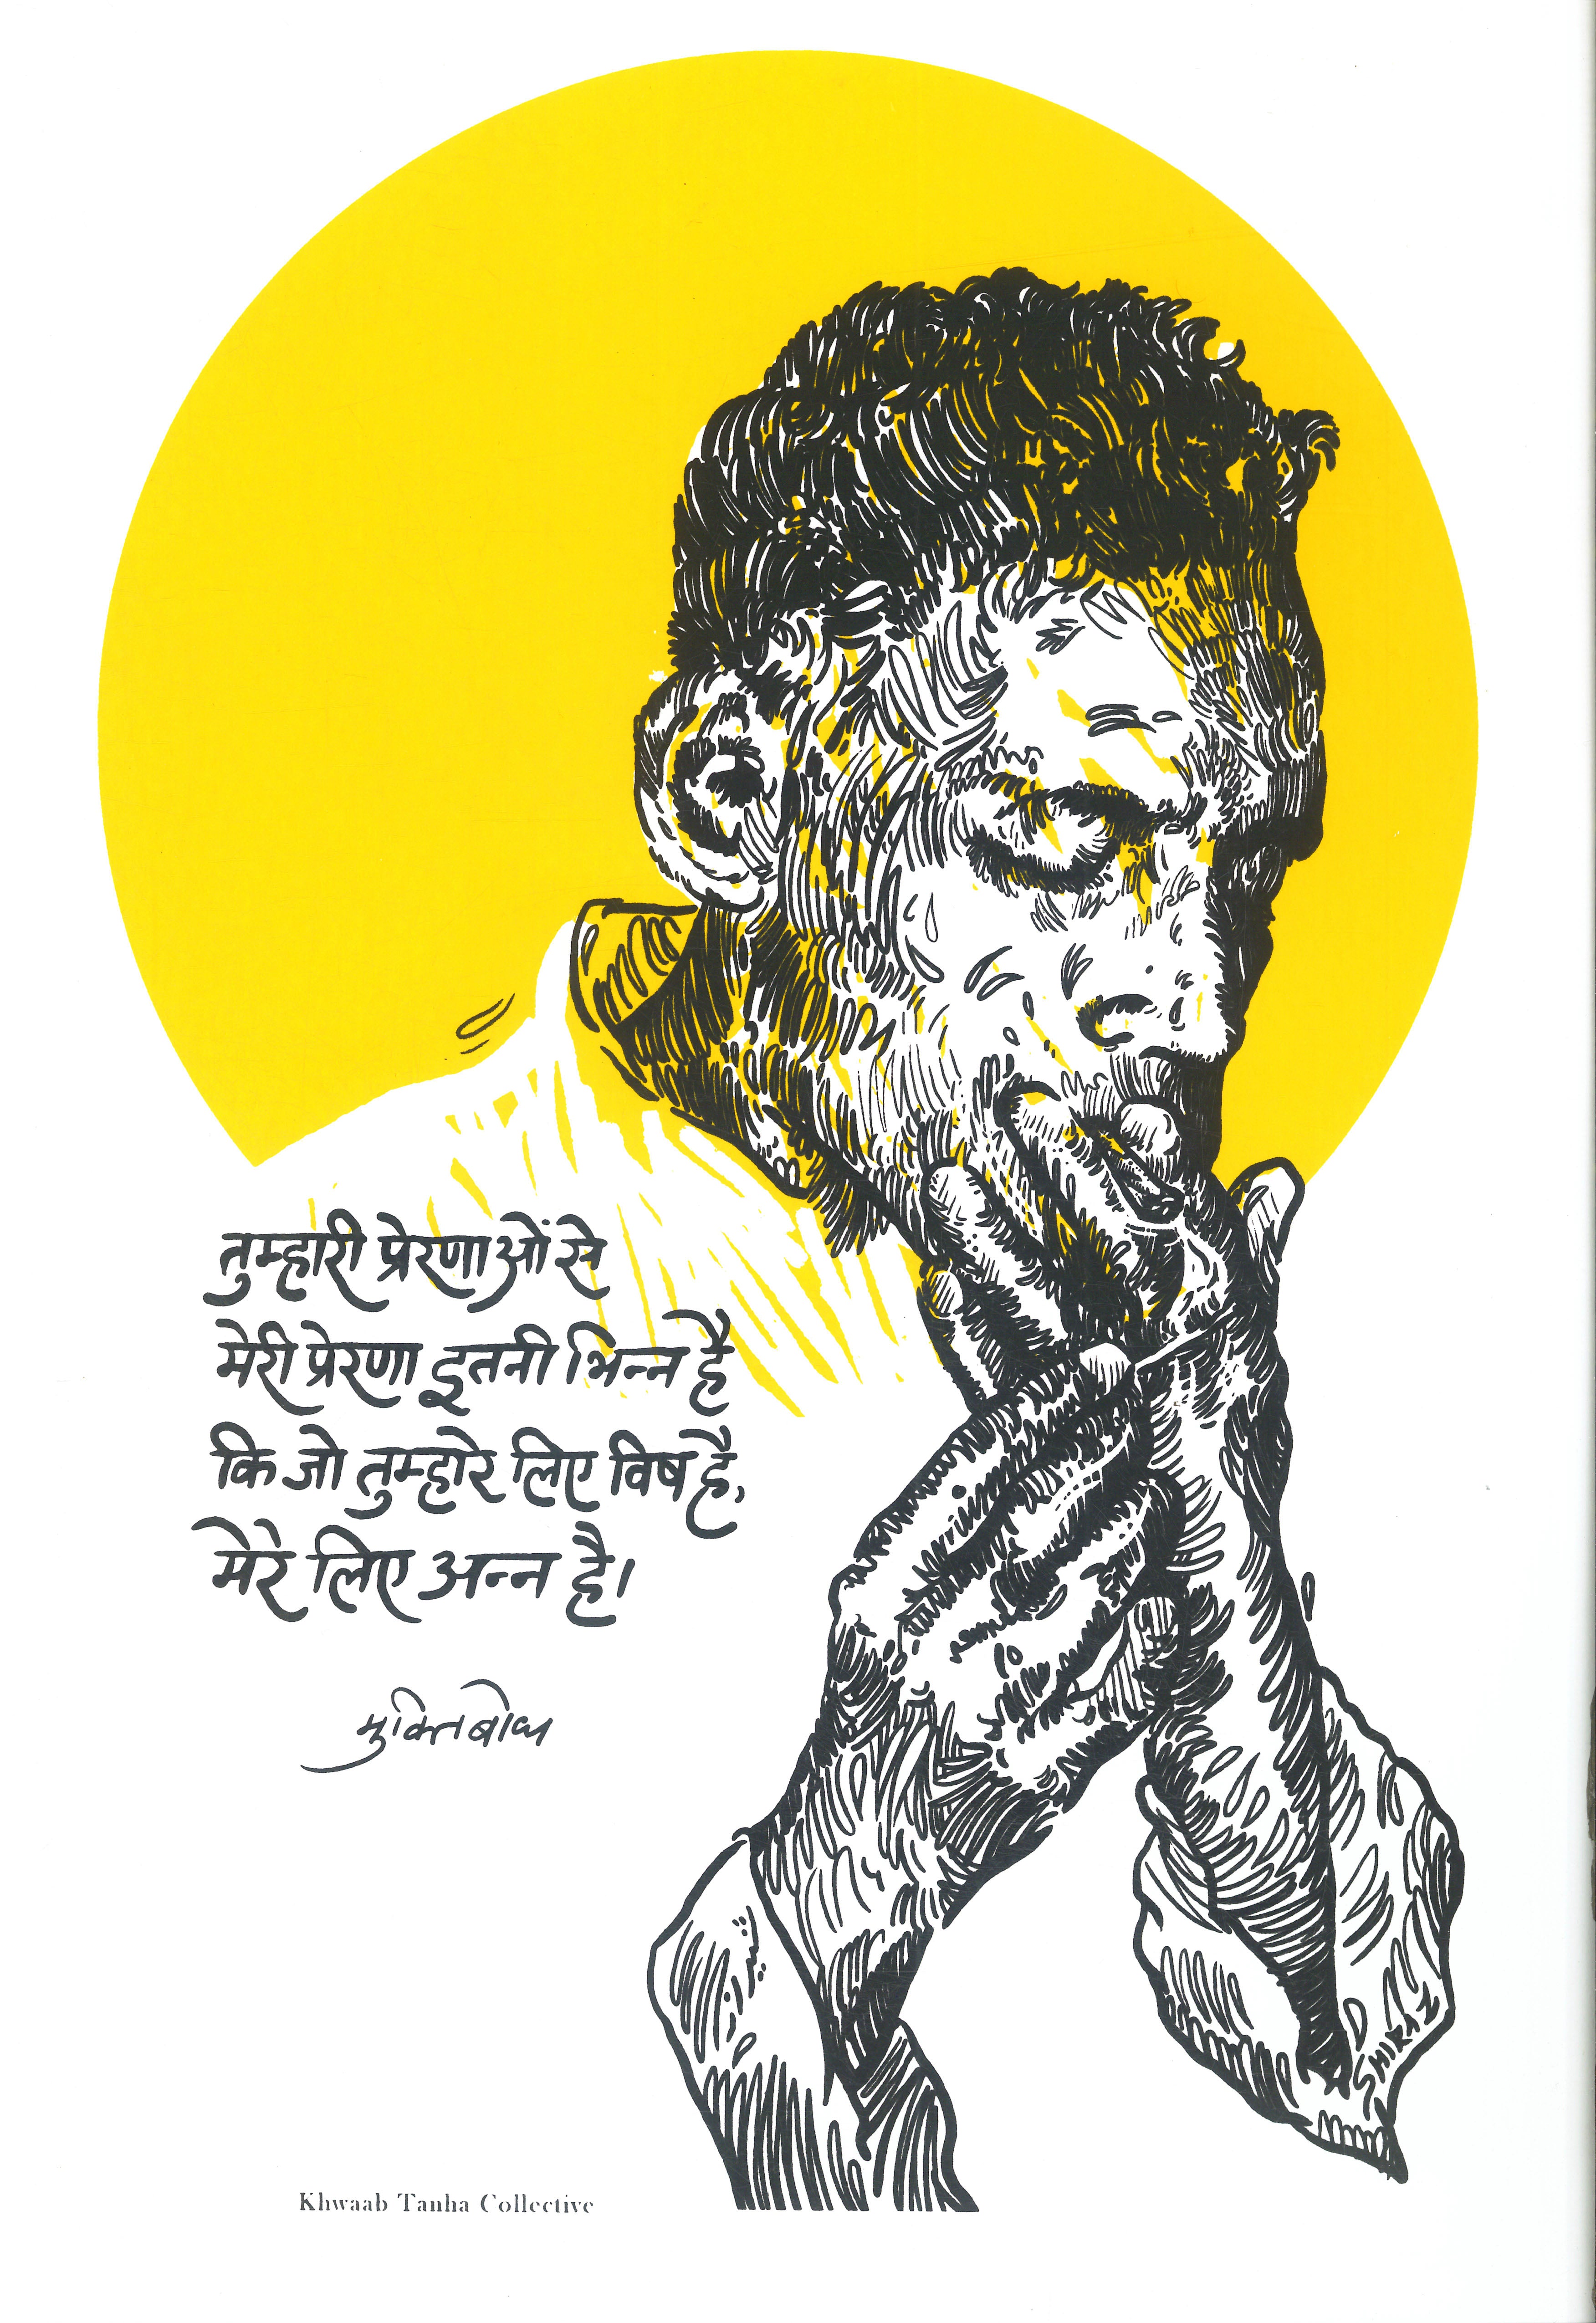 तुम्हारी प्रेरणाओं से
मेरी प्रेरणा इतनी भिन्न है
कि जो तुम्हारे लिए विष है,
मेरे लिए अन्न है।
मुक्तिबोध
SHIRAZ
Khwaab Tanha Collective